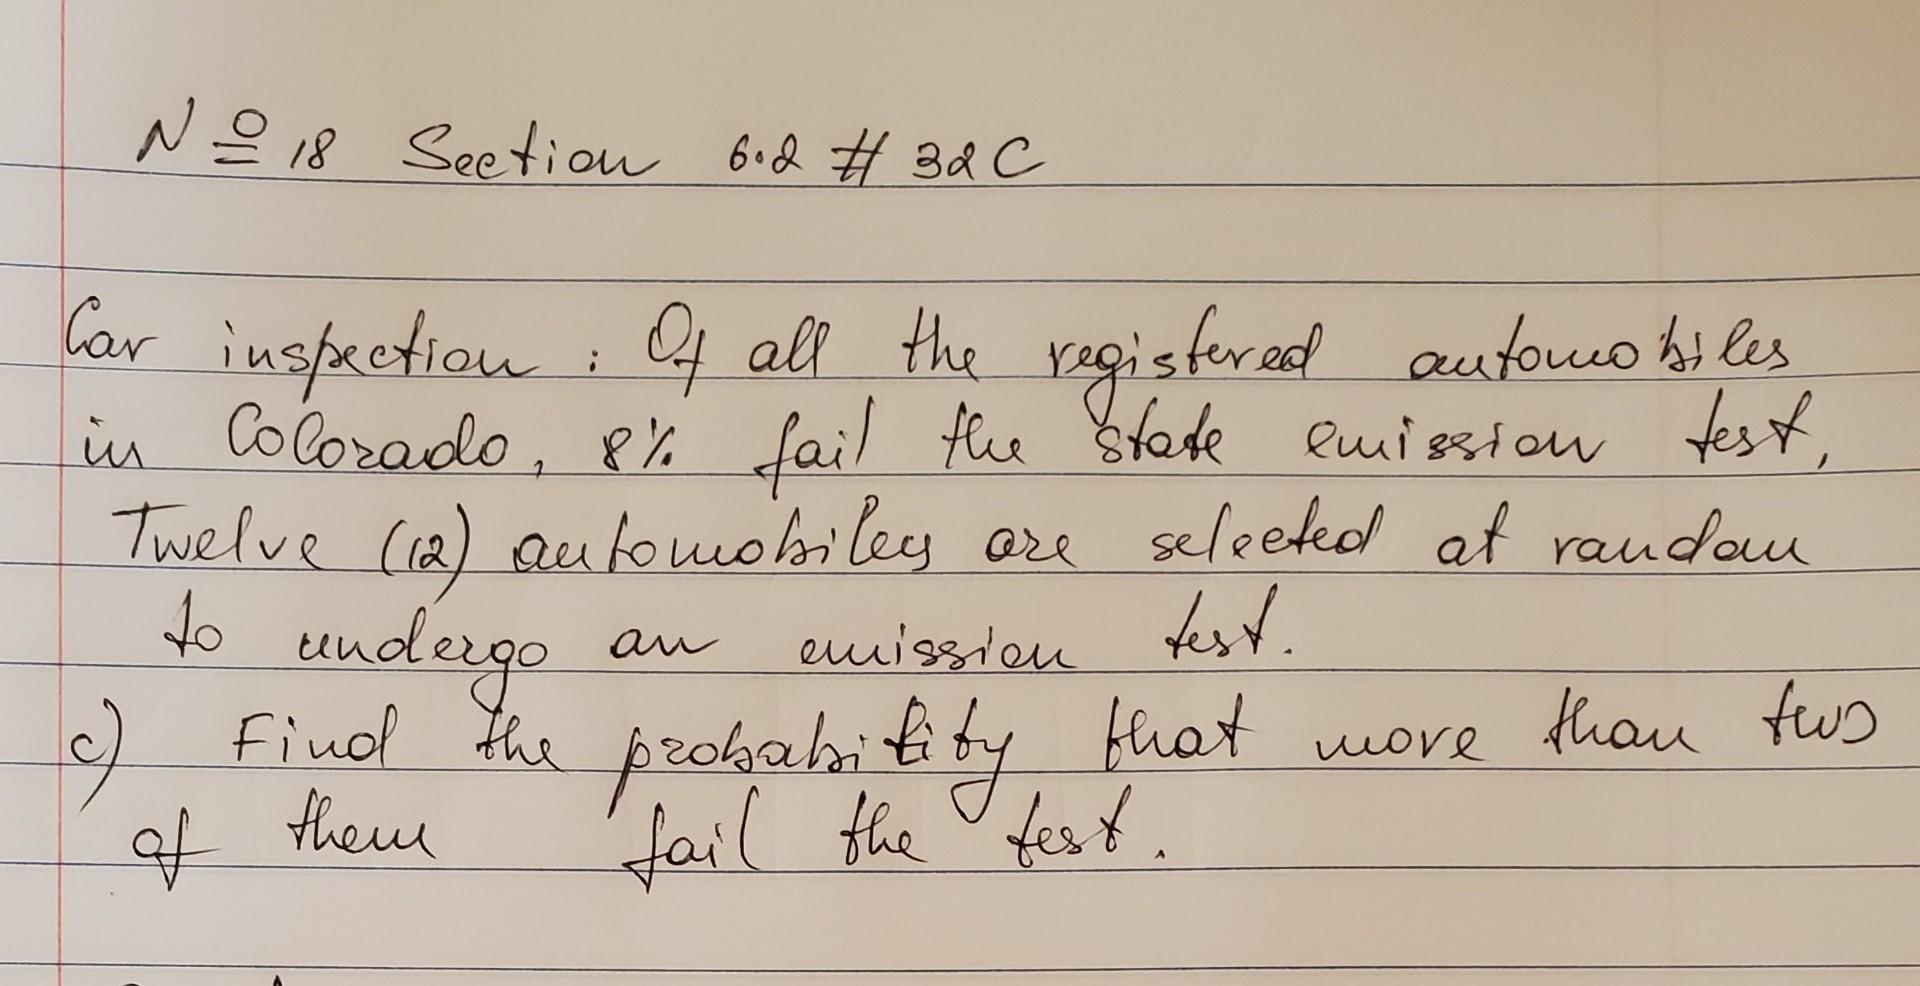 № 18 Section 6.2 # 32C
Car inspection : Of all the registered automobiles
in Colorado, 8% fail the state emission test,
Twelve (12) automobiles are selected at random
to undergo an emission test.
c) Find the probability that more than two
of them fail the test.